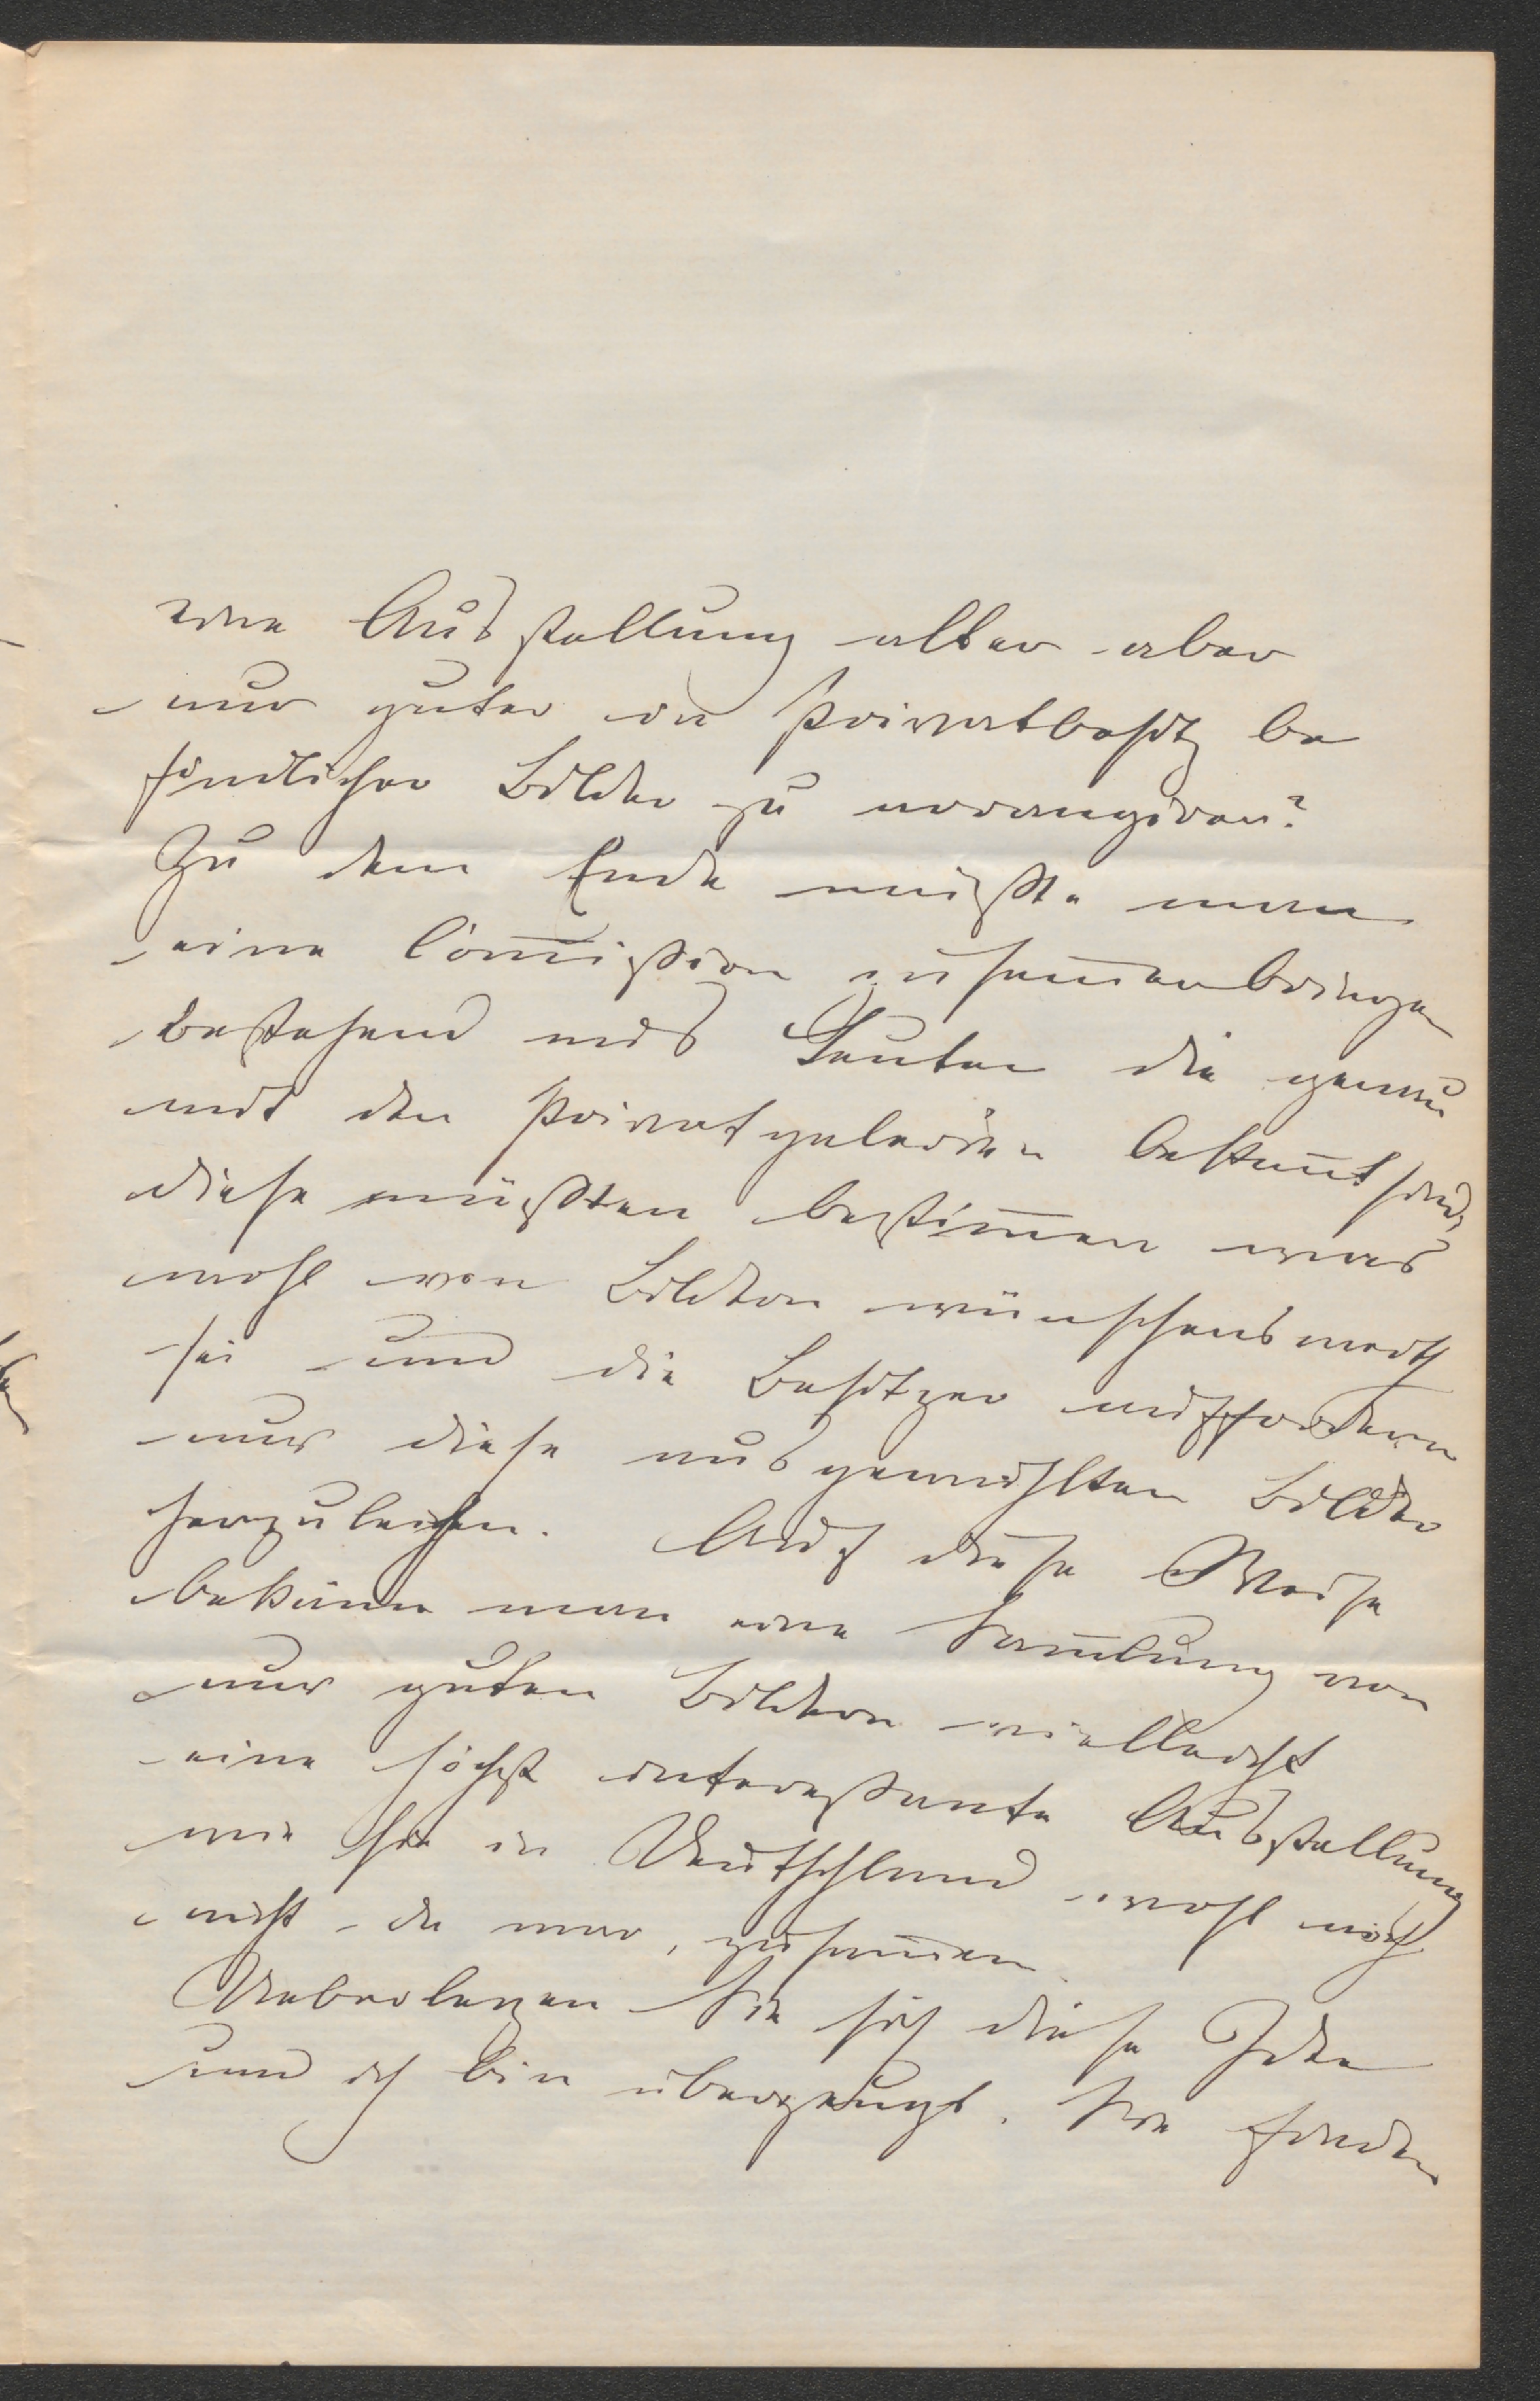 eine Ausstellung alter aber
nur guter in Privatbesitz be
findlicher Bilder zu arrangiren?
Zu dem Ende müßte man
eine Com̄ission zusam̄enbringen
bestehend aus Leuten die genau
mit den Privatgalerien bekan̄t sind,
diese müßten bestim̄en was
wohl von Bildern wünschenswerth
sei und die Besitzer auffordern
nur diese ausgewählten Bilder
herzuleihen. Auf diese Weise
bekäme man eine Sam̄lung von
nur guten Bildern vielleicht
eine höchst interessante Ausstellung
wie sie in Deutschland wohl noch
nicht da war, zusam̄en.
Ueberlegen Sie sich diese Idee
und ich bin überzeugt. Sie finden